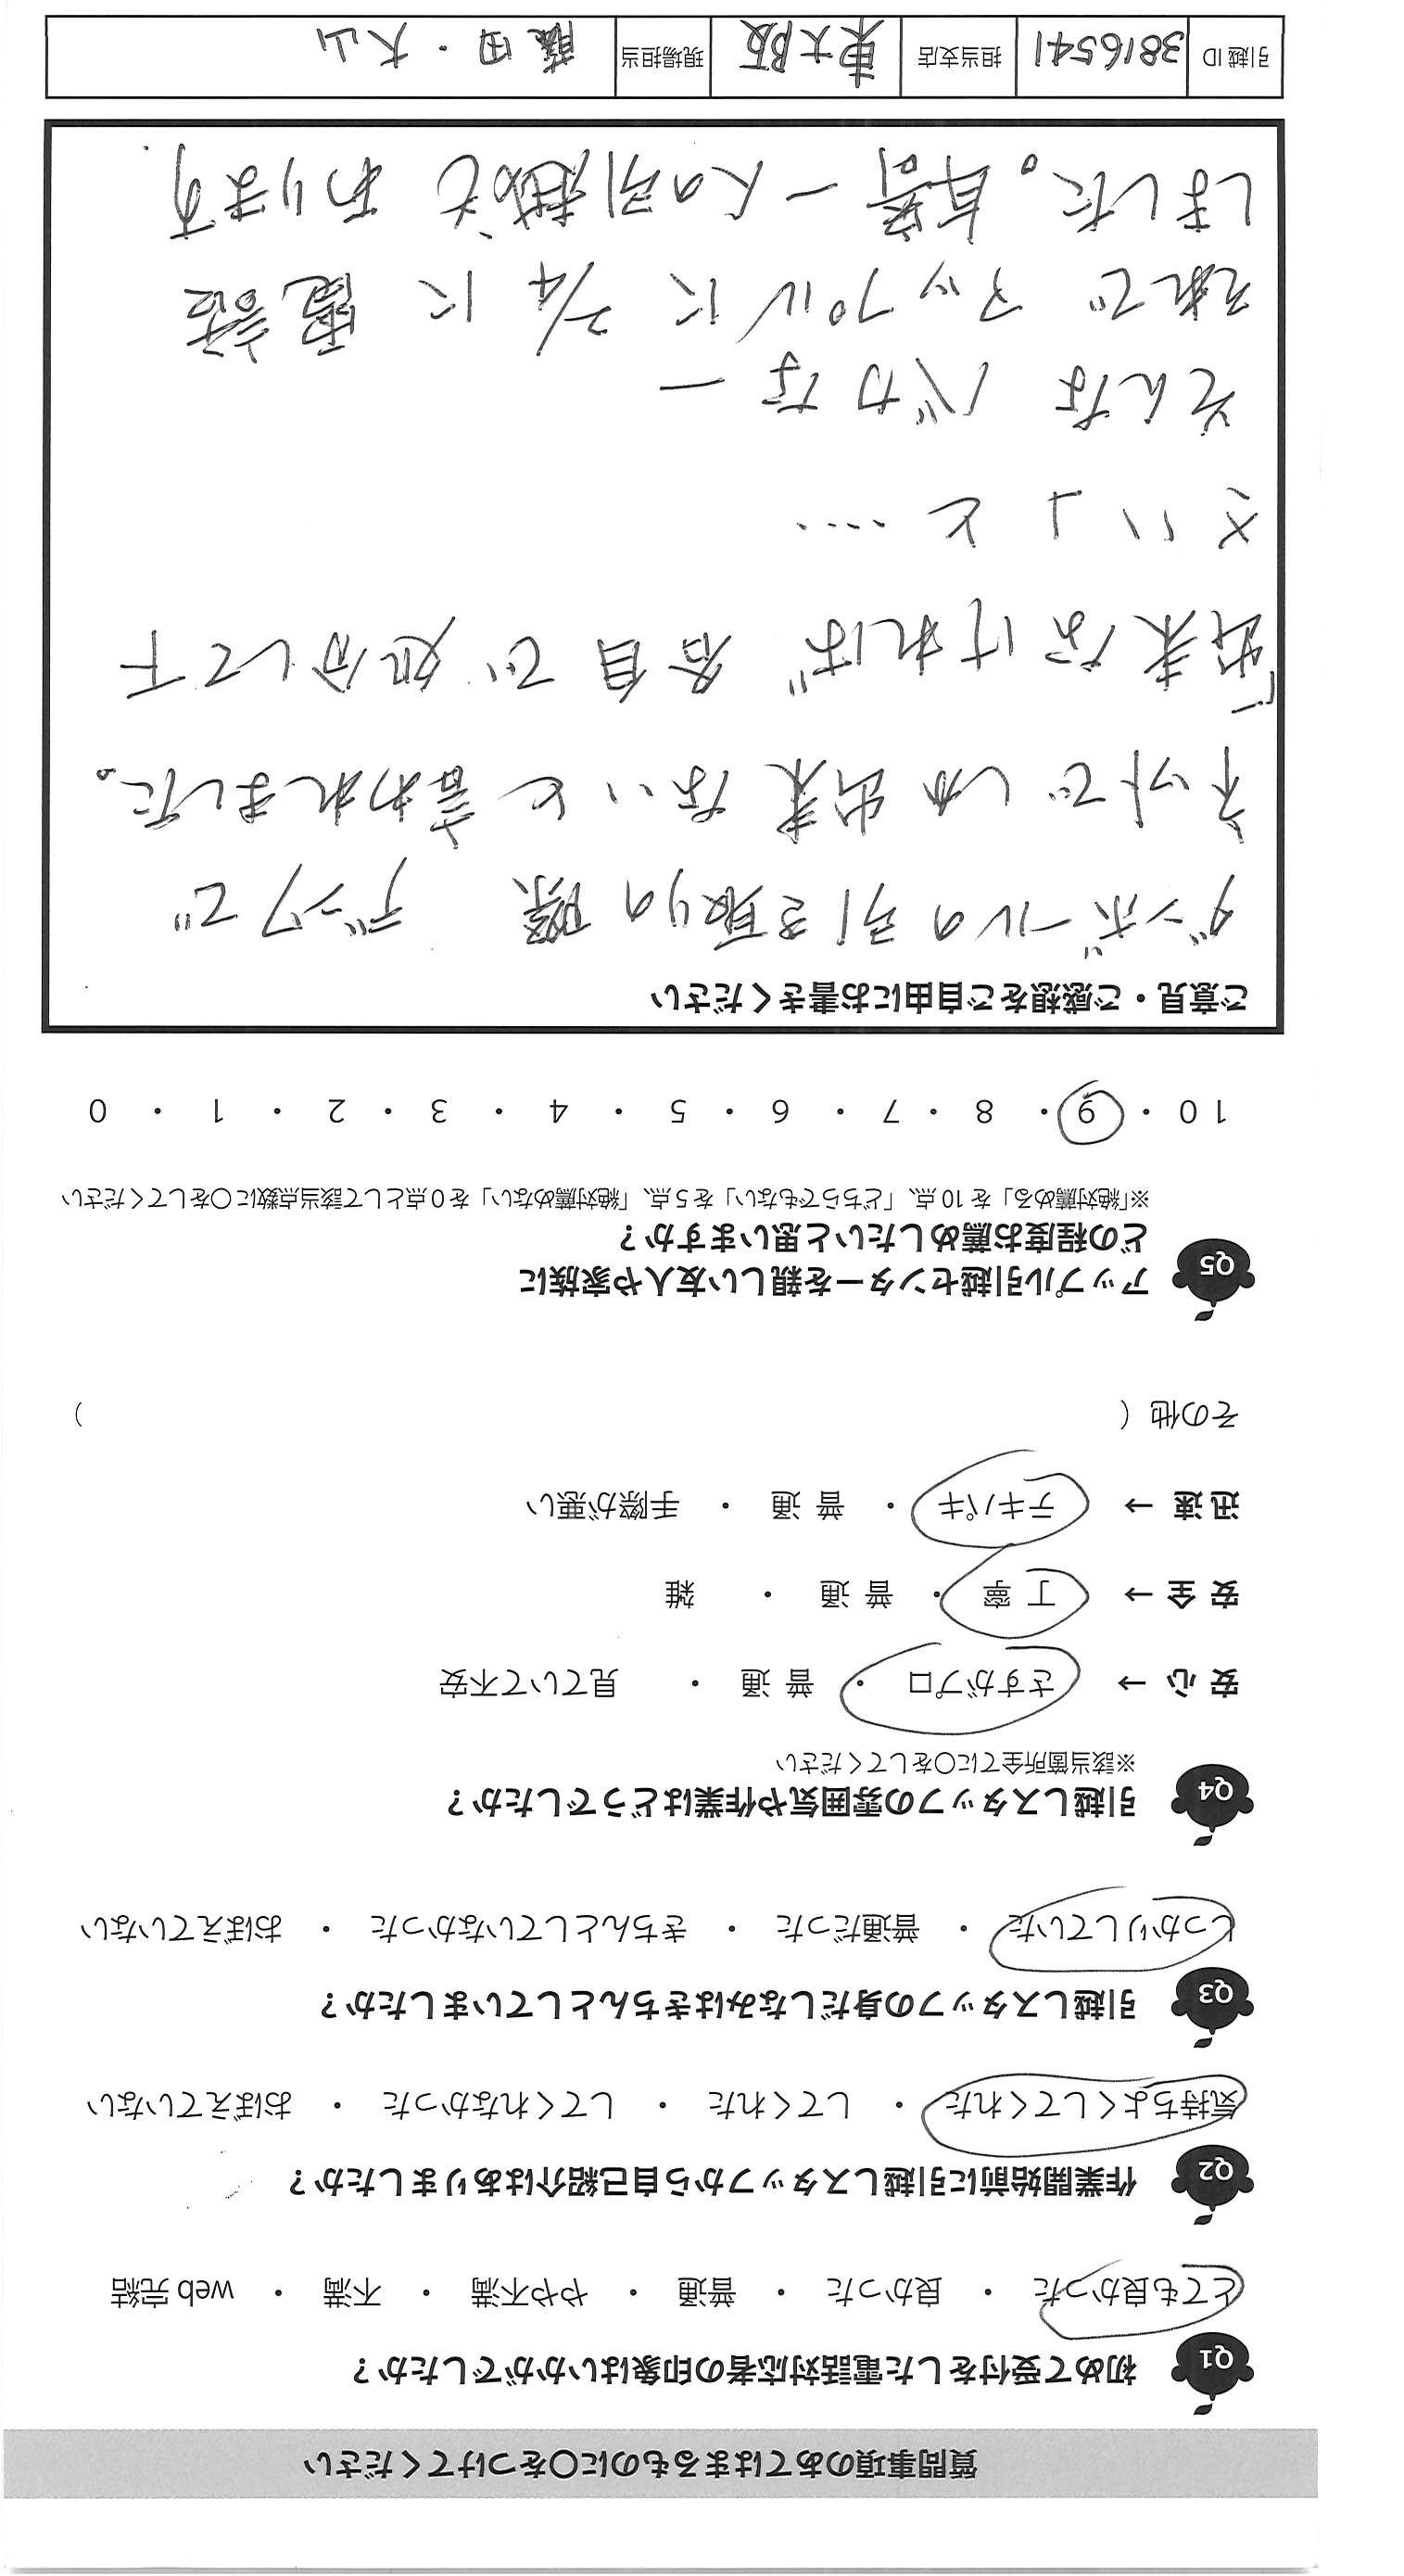 質問事項のあてはまるものに〇をつけてください
Q1 初めて受付をした電話対応者の印象はいかがでしたか？
とても良かった ・ 良かった ・ 普通 ・ やや不満 ・ 不満 ・ web 完結
Q2 作業開始前に引越しスタッフから自己紹介はありましたか？
気持ちよくしてくれた ・ してくれた ・ してくれなかった ・ おぼえていない
Q3 引越しスタッフの身だしなみはきちんとしていましたか？
しっかりしていた ・ 普通だった ・ きちんとしていなかった ・ おぼえていない
Q4 引越しスタッフの雰囲気や作業はどうでしたか？
※該当箇所全てに〇をしてください
安 心 → さすがプロ ・ 普 通 ・ 見ていて不安
安 全 → 丁 寧 ・ 普 通 ・ 雑
迅 速 → テキパキ ・ 普 通 ・ 手際が悪い
その他（ ）
Q5 アップル引越センターを親しい友人や家族に
どの程度お薦めしたいと思いますか？
※「絶対薦める」を 10 点、「どちらでもない」を 5 点、「絶対薦めない」を 0 点として該当点数に〇をしてください
10 ・ 9 ・ 8 ・ 7 ・ 6 ・ 5 ・ 4 ・ 3 ・ 2 ・ 1 ・ 0
ご意見・ご感想をご自由にお書きください
ダンボールの引き取りの際 デンワで
ネットでしか出来ないと言われました。
「出来なければ 各自で処分して下
さい」と ....
そんなバカなー
それでアップルに 2/4 に電話
しました。 一人の引越もあります
引越 ID 3816541 担当支店 東大阪 現場担当 藤田・大山